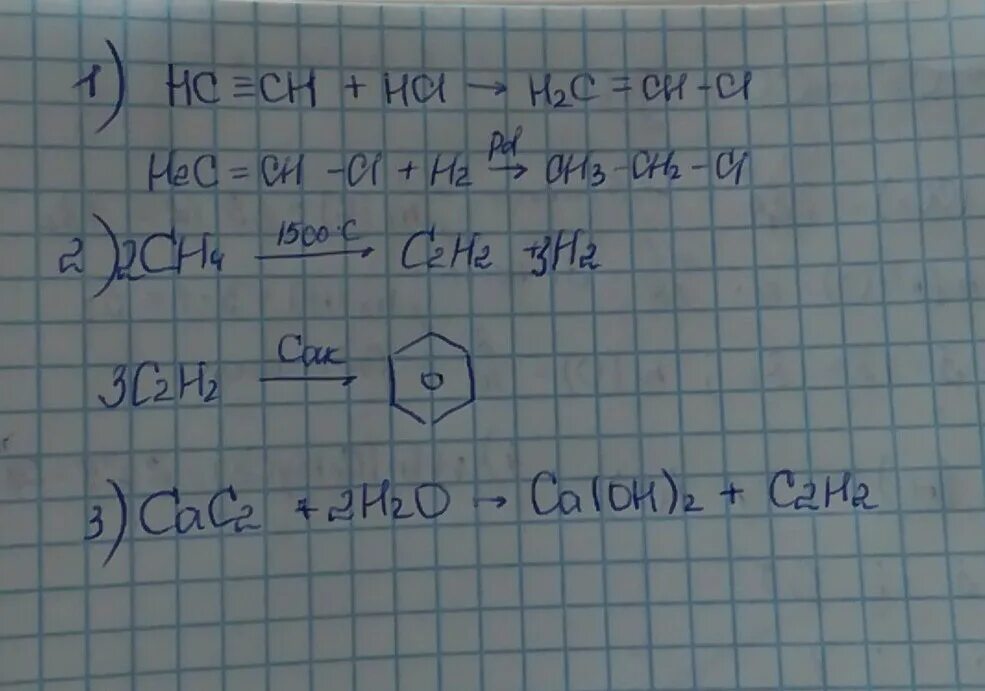 1) HC≡CH + HCl → H₂C=CH-Cl
HeC=CH-Cl + H₂ →Pd CH₃-CH₂-Cl
2) 2CH₄ →1500°C C₂H₂ +3H₂
3C₂H₂ →Cак
3) CaC₂ + 2H₂O → Ca(OH)₂ + C₂H₂